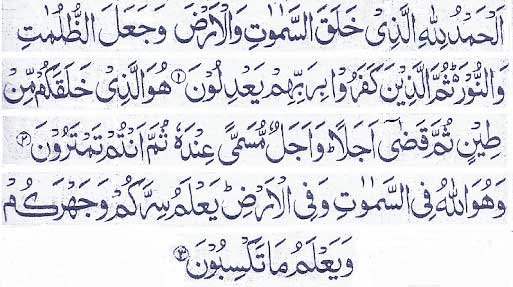 اَلْحَمْدُ لِلّٰهِ الَّذِیْ خَلَقَ السَّمٰوٰتِ وَالْاَرْضَ وَجَعَلَ الظُّلُمٰتِ
وَالنُّوْرَ ؕ ثُمَّ الَّذِیْنَ كَفَرُوْا بِرَبِّهِمْ یَعْدِلُوْنَ ۝۱ هُوَ الَّذِیْ خَلَقَكُمْ مِّنْ
طِیْنٍ ثُمَّ قَضٰۤی اَجَلًا ؕ وَاَجَلٌ مُّسَمًّی عِنْدَهٗ ثُمَّ اَنْتُمْ تَمْتَرُوْنَ ۝۲
وَهُوَ اللّٰهُ فِی السَّمٰوٰتِ وَفِی الْاَرْضِ ؕ یَعْلَمُ سِرَّكُمْ وَجَهْرَكُمْ
وَیَعْلَمُ مَا تَكْسِبُوْنَ ۝۳